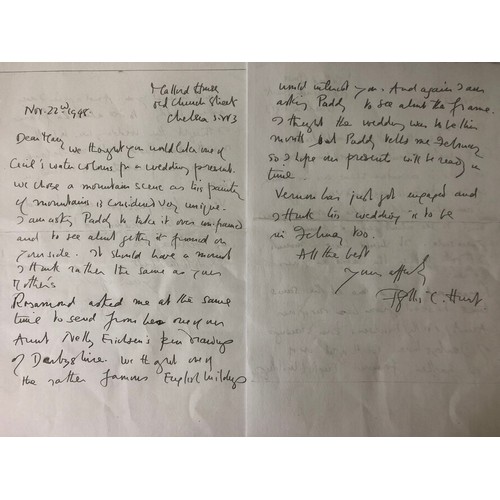 Mallord House
Old Church Street
Nov. 22nd 1948. Chelsea S.W.3
Dear Mary
We thought you would like one of
Cecil's water colours for a wedding present.
We chose a mountain scene as his painting
of mountains is considered very unique.
I am asking Paddy to take it over un-framed
and to see about getting it framed on
your side. It should have a mount
I think rather the same as your
Mother's
Rosamond asked me at the same
time to send from her one of our
Aunt Nelly Erichsen's pen drawings
of Derbyshire. We thought one of
the rather famous English buildings
would interest you. And again I am
asking Paddy to see about the frame.
I thought the wedding was to be this
month but Paddy tells me February
so I hope our presents will be ready in
time.
Vernon has just got engaged and
I think his wedding is to be
in February too.
All the best
Yours affectly
Phyllis C. Hunt